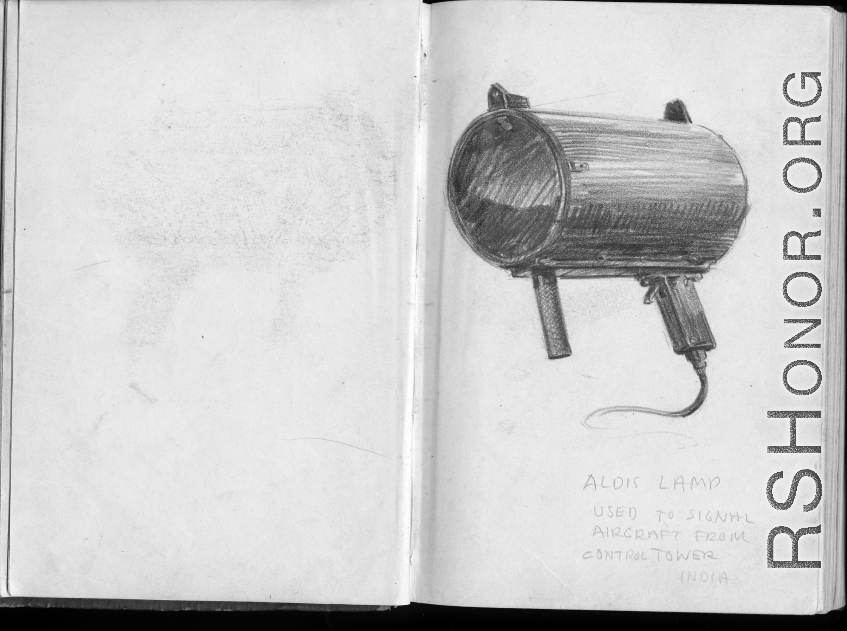 ALDIS LAMP
USED TO SIGNAL
AIRCRAFT FROM
CONTROL TOWER
INDIA
RSHONOR.ORG